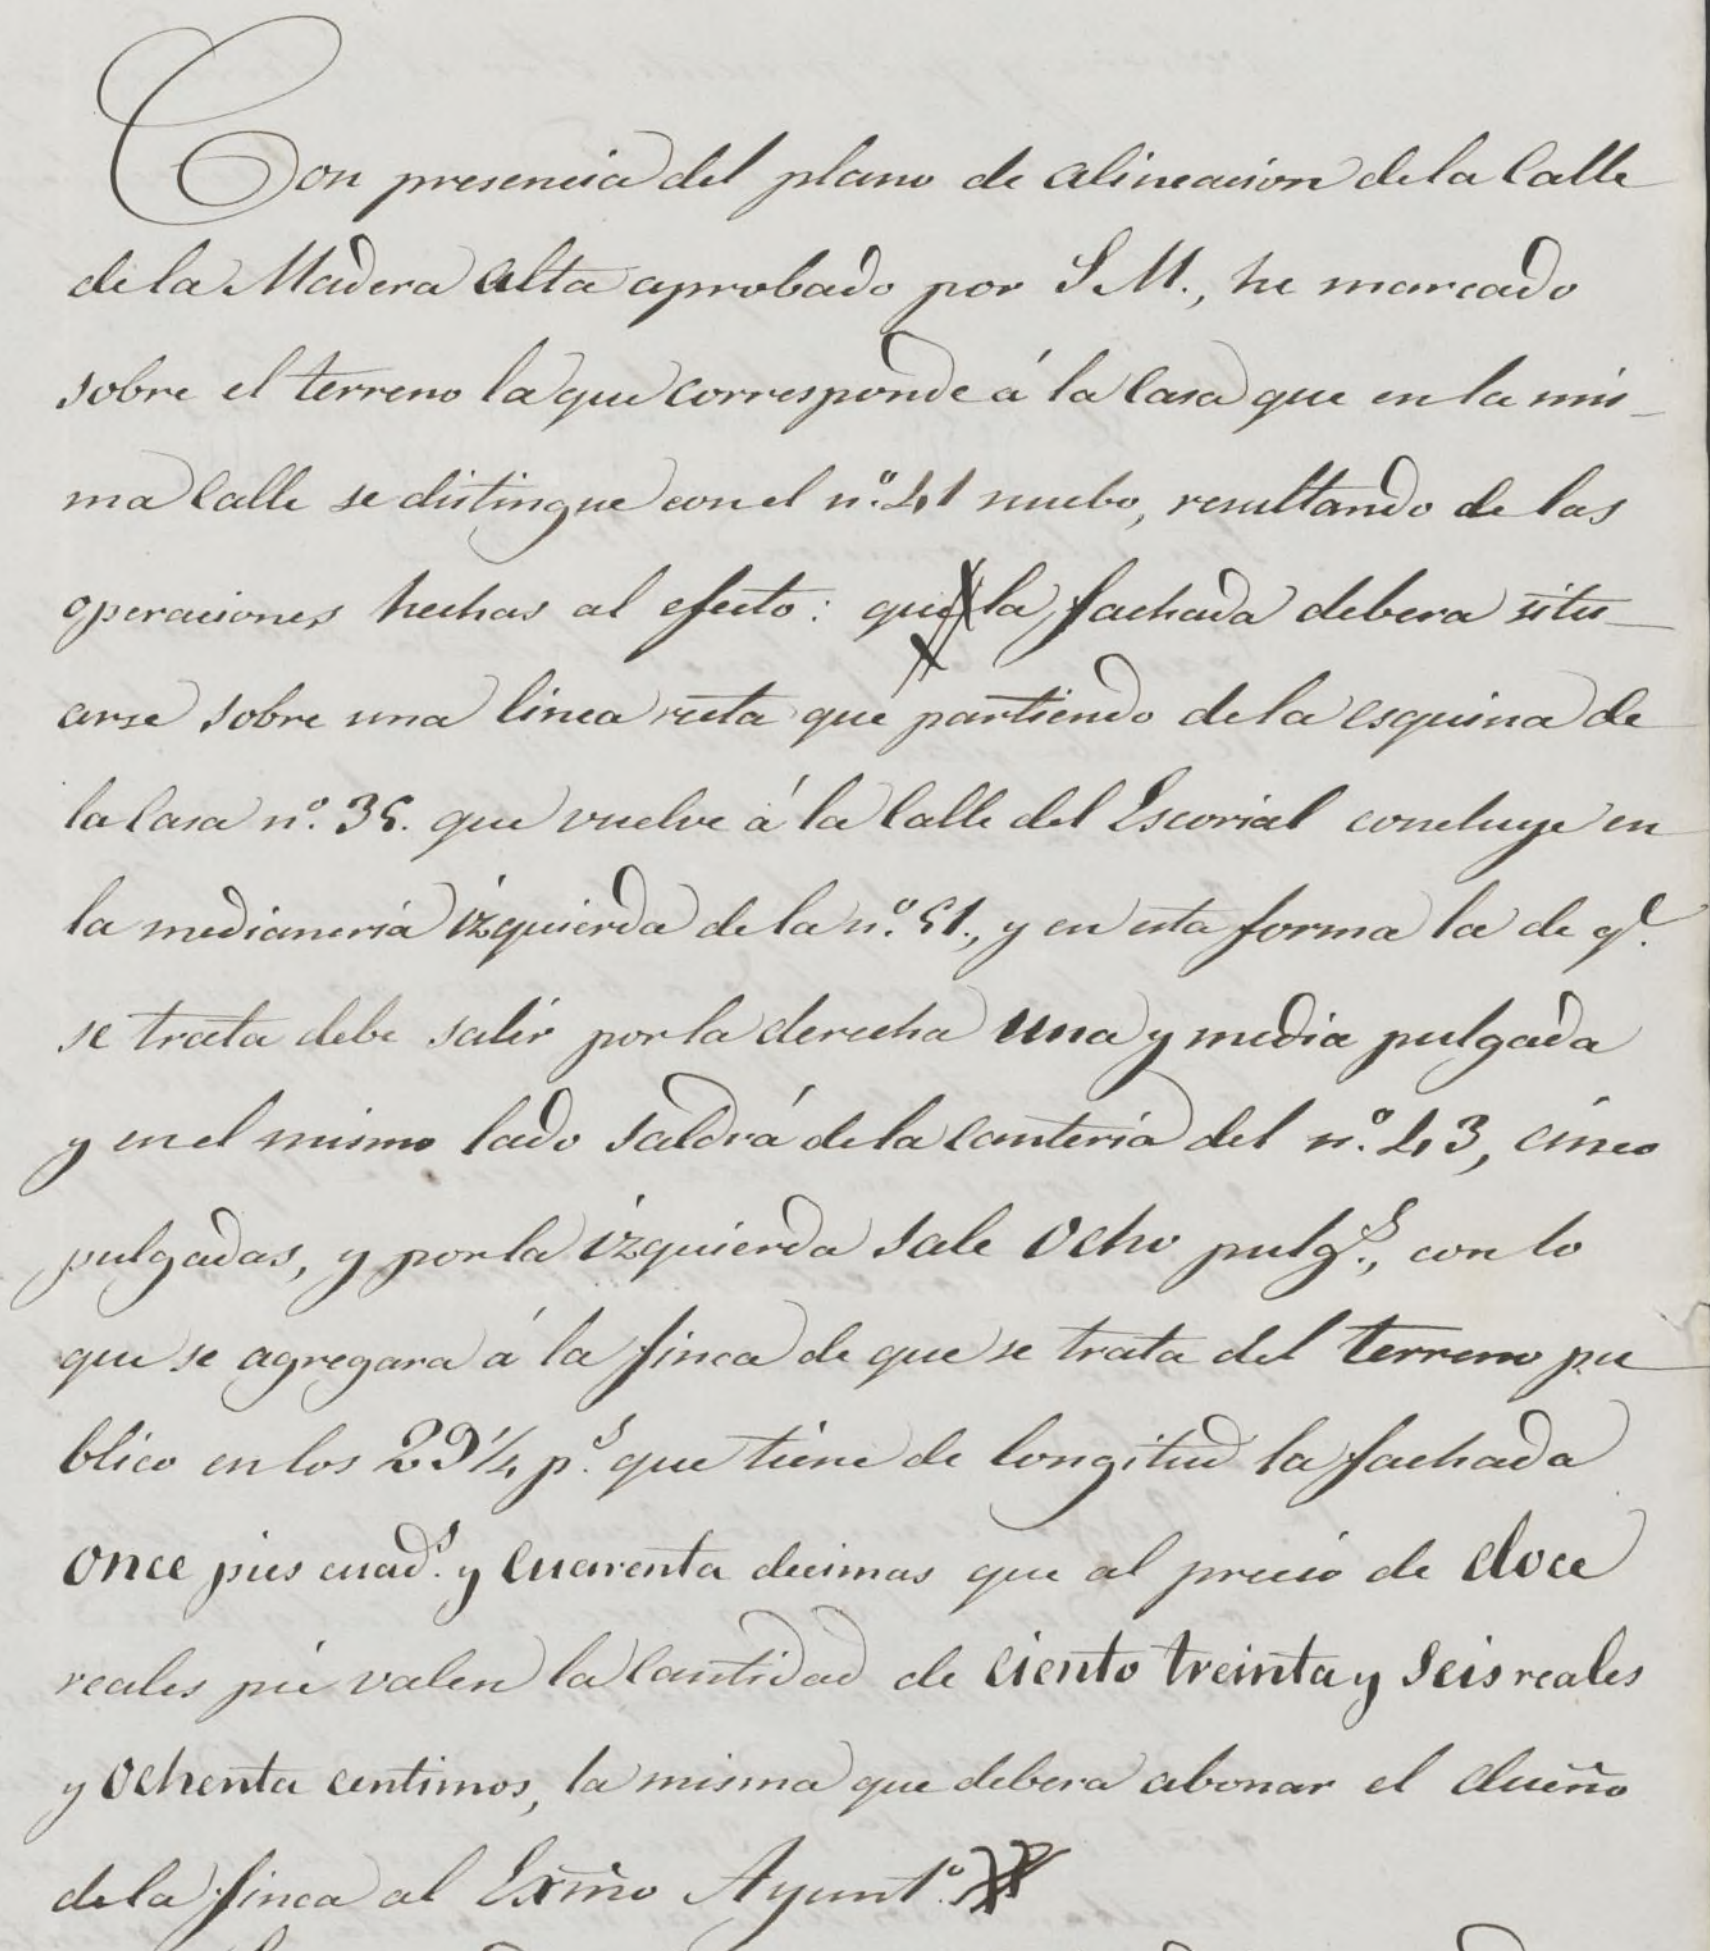 Con presencia del plano de alineacion de la Calle
de la Madera alta aprobado por S.M., he marcado
sobre el terreno la que corresponde á la Casa que en la mis-
ma Calle se distingue con el nº. 41 nuebo, resultando de las
operaciones hechas al efecto: que la fachada debera situ-
arse sobre una linea recta que partiendo de la esquina de
la Casa nº. 35. que vuelve á la Calle del Escorial concluye en
la medianería izquierda de la nº. 51., y en esta forma la de qe.
se trata debe salir por la derecha una y media pulgada
y en el mismo lado saldrá de la Cantería del nº. 43, cinco
pulgadas, y por la izquierda sale ocho pulgs., con lo
que se agregara á la finca de que se trata del terreno pu
blico en los 29 1/4 ps. que tiene de longitud la fachada
once pies cuads. y cuarenta decimas que al precio de doce
reales pie valen la Cantidad de ciento treinta y seis reales
y ochenta centimos, la misma que debera abonar el dueño
de la finca al Exmo Ayunto.